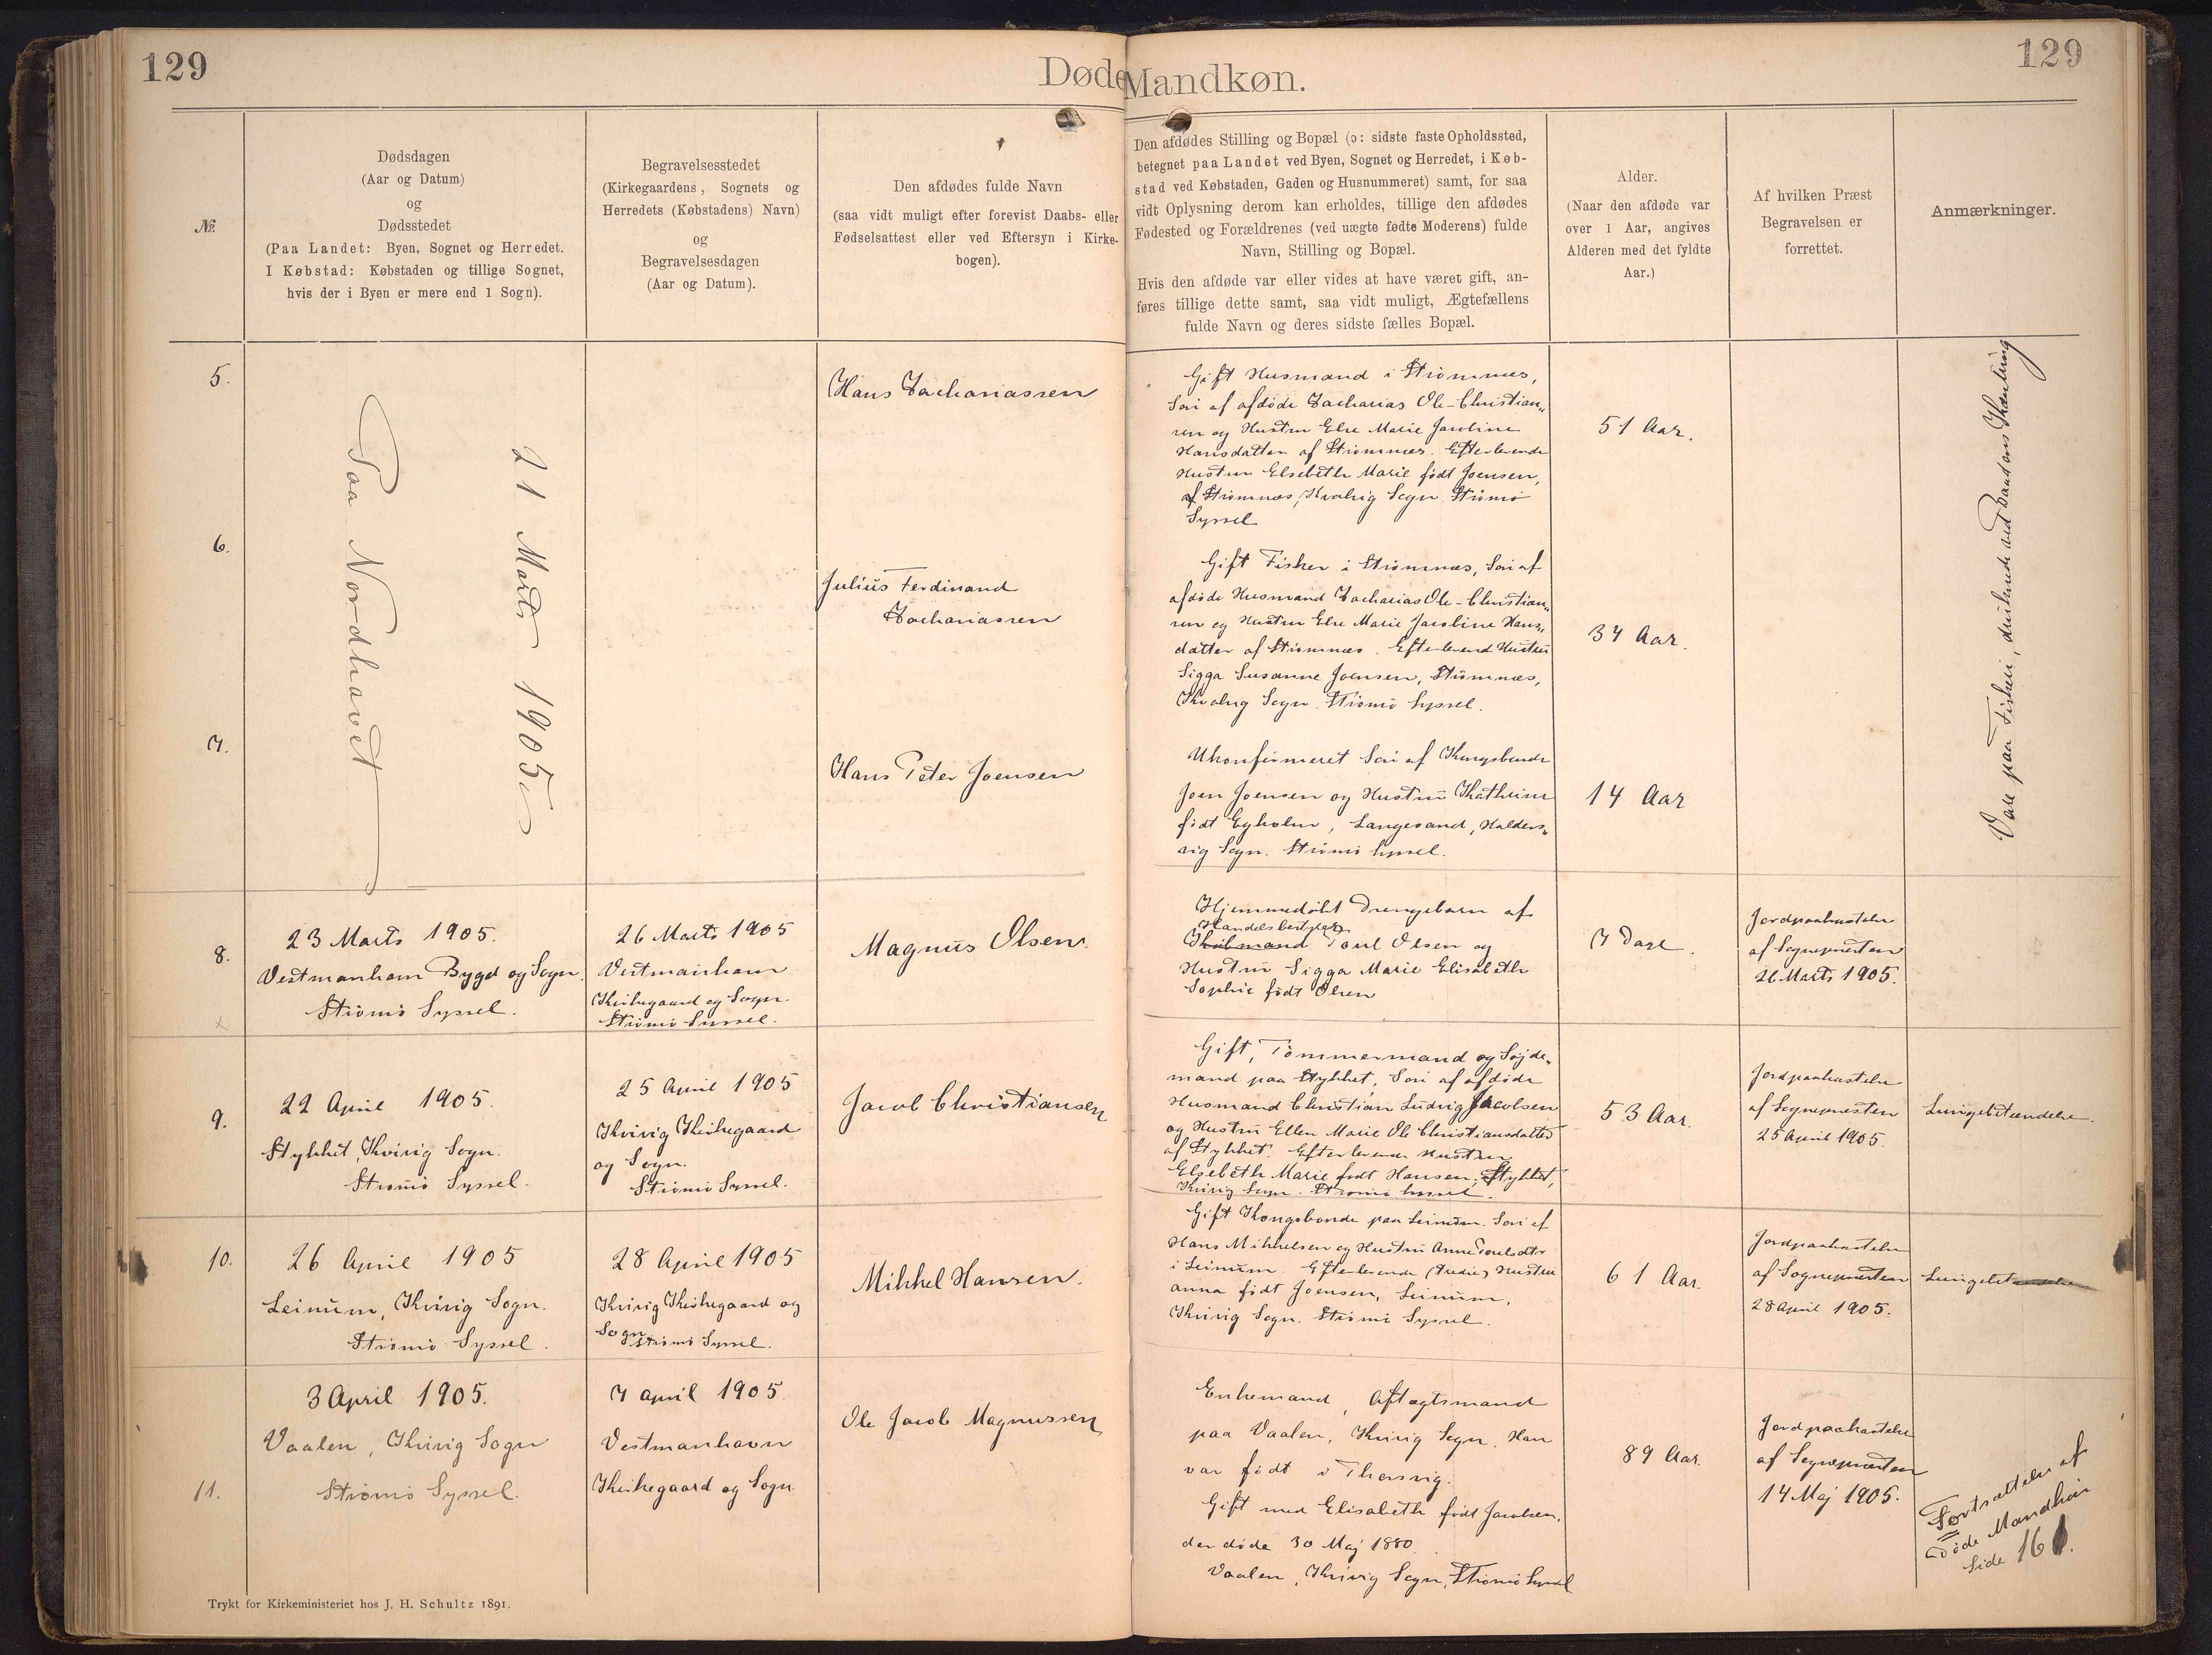 129
Døde Mandkøn.
129
№.
Dødsdagen
(Aar og Datum)
og
Dødsstedet
(Paa Landet: Byen, Sognet og Herredet.
I Købstad: Købstaden og tillige Sognet,
hvis der i Byen er mere end 1 Sogn).
Begravelsesstedet
(Kirkegaardens, Sognets og
Herredets (Købstadens) Navn)
og
Begravelsesdagen
(Aar og Datum).
Den afdødes fulde Navn
(saa vidt muligt efter forevist Daabs- eller
Fødselsattest eller ved Eftersyn i Kirke-
bogen).
Den afdødes Stilling og Bopæl (ɔ: sidste faste Opholdssted,
betegnet paa Landet ved Byen, Sognet og Herredet, i Køb-
stad ved Købstaden, Gaden og Husnummeret) samt, for saa
vidt Oplysning derom kan erholdes, tillige den afdødes
Fødested og Forældrenes (ved uægte fødte Moderens) fulde
Navn, Stilling og Bopæl.
Hvis den afdøde var eller vides at have været gift, an-
føres tillige dette samt, saa vidt muligt, Ægtefællens
fulde Navn og deres sidste fælles Bopæl.
Alder.
(Naar den afdøde var
over 1 Aar, angives
Alderen med det fyldte
Aar.)
Af hvilken Præst
Begravelsen er
forrettet.
Anmærkninger.
5.
21 Marts 1905
Paa Nordhavet
Hans Zachariassen
Gift Husmand i Strømnæs,
Søn af afdøde Zacharias Ole-Christian„
sen og Hustru Else Marie Jacobine
Hansdatter af Strømnæs. Efterlevende
Hustru Elsebeth Marie født Joensen,
af Strømnæs, Kvalvig Sogn Strømø
Syssel
51 Aar.
Vare paa Fiskeri, druknede ved
6.
Julius Ferdinand
Zachariassen
Gift Fisker i Strømnæs, Søn af
afdøde Husmand Zacharias Ole-Christian„
sen og Hustru Else Marie Jacobine Hans„
datter af Strømnæs. Efterlevend Hustru
Sigga Susanne Joensen, Strømnæs,
Kvalvig Sogn. Strømø Syssel.
34 Aar.
7.
Hans Peter Joensen
Ukonfirmeret Søn af Kongsbonde
Joen Joensen og Hustru Kathrine
født Egholm, Langesand, Halders„
vig Sogn. Strømø Syssel.
14 Aar
8.
23 Marts 1905.
Vestmanhavn Bygd og Sogn
Strømø Syssel.
26 Marts 1905
Vestmanhavn
Kirkegaard og Sogn.
Strømø Syssel.
Magnus Olsen.
Hjemmedøbt Drengebarn af
Handelsbestyrer
Poul Olsen og
Hustru Sigga Marie Elisabeth
Sophie født Olsen
7 Dage.
Jordpaakastelse
af Sognepræsten
26 Marts 1905.
9.
22 April 1905.
Stykket, Kvivig Sogn.
Strømø Syssel.
25 April 1905
Kvivig Kirkegaard
og Sogn.
Strømø Syssel.
Jacob Christiansen
Gift, Tømmermand og Søjde„
mand paa Stykket, Søn af afdøde
Husmand Christian Ludvig Jacobsen
og Hustru Ellen Marie Ole Christiansdatter
af Stykket. Efterlevende Hustru
Elsebeth Marie født Hansen, Stykket,
Kvivig Sogn. Strømø Syssel.
53 Aar.
Jordpaakastelse
af Sognepræsten
25 April 1905.
Lungebetændelse.
10.
26 April 1905
Leinum, Kvivig Sogn.
Strømø Syssel.
28 April 1905
Kvivig Kirkegaard og
Sogn
Strømø Syssel.
Mikkel Hansen.
Gift Kongsbonde paa Leinum. Søn af
Hans Mikkelsen og Hustru Anne Poulsdtr
i Leinum. Efterlevende (tredie) Hustru
Anna født Joensen, Leinum,
Kvivig Sogn. Strømø Syssel.
61 Aar.
Jordpaakastelse
af Sognepræsten
28 April 1905.
Lungebetændelse
11.
3 April 1905.
Vaalen, Kvivig Sogn
Strømø Syssel.
7 April 1905
Vestmanhavn
Kirkegaard og Sogn.
Ole Jacob Magnussen
Enkemand, Aftægtsmand
paa Vaalen, Kvivig Sogn. Han
var født i Thorsvig.
Gift med Elisabeth født Jacobsen,
der døde 30 Maj 1880
Vaalen, Kvivig Sogn, Strømø Syssel
89 Aar.
Jordpaakastelse
af Sognepræsten
14 Maj 1905.
Fortsættelse af
Døde Mandkøn
Side 161.
Trykt for Kirkeministeriet hos J. H. Schultz 1891.